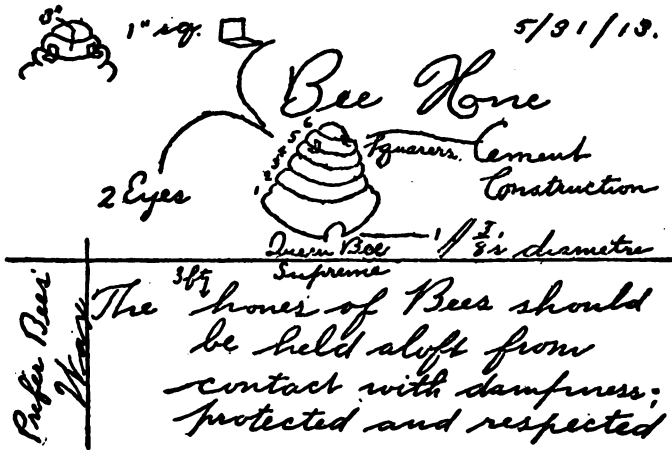 8"
1" sq.
5/31/13.
Bee Hone
6
5
4
3
2
1
Squarers.
Cement
Construction
2 Eyes
Queen Bee
Supreme
1" 7/8s diametre
3 ft
Prefer Bees'
Wax
The hones of Bees should
be held aloft from
contact with dampness;
protected and respected